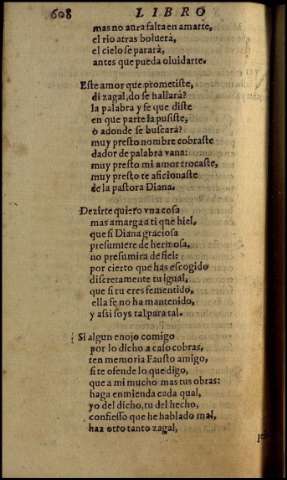 608 LIBRO
mas no aura falta en amarte,
el rio atras boluerà,
el cielo se pararà,
antes que pueda oluidarte.
Este amor que prometiste,
di zagal, do se hallarà?
la palabra y fe que diste
en que parte la pusiste,
ò adonde se buscarà?
muy presto nombre cobraste
dador de palabra vana:
muy presto mi amor trocaste,
muy presto te aficionaste
de la pastora Diana.
Dezirte quiero vna cosa
mas amarga a ti que hiel,
que si Diana graciosa
presumiere de hermosa,
no presumira de fiel:
por cierto que has escogido
discretamente tu igual,
que si tu eres fementido,
ella fe no ha mantenido,
y assi soys tal para tal.
Si algun enojo comigo
por lo dicho a caso cobras,
ten memoria Fausto amigo,
si te ofende lo que digo,
que a mi mucho mas tus obras:
haga enmienda cada qual,
yo del dicho, tu del hecho,
confiesso que he hablado mal,
haz otro tanto zagal,